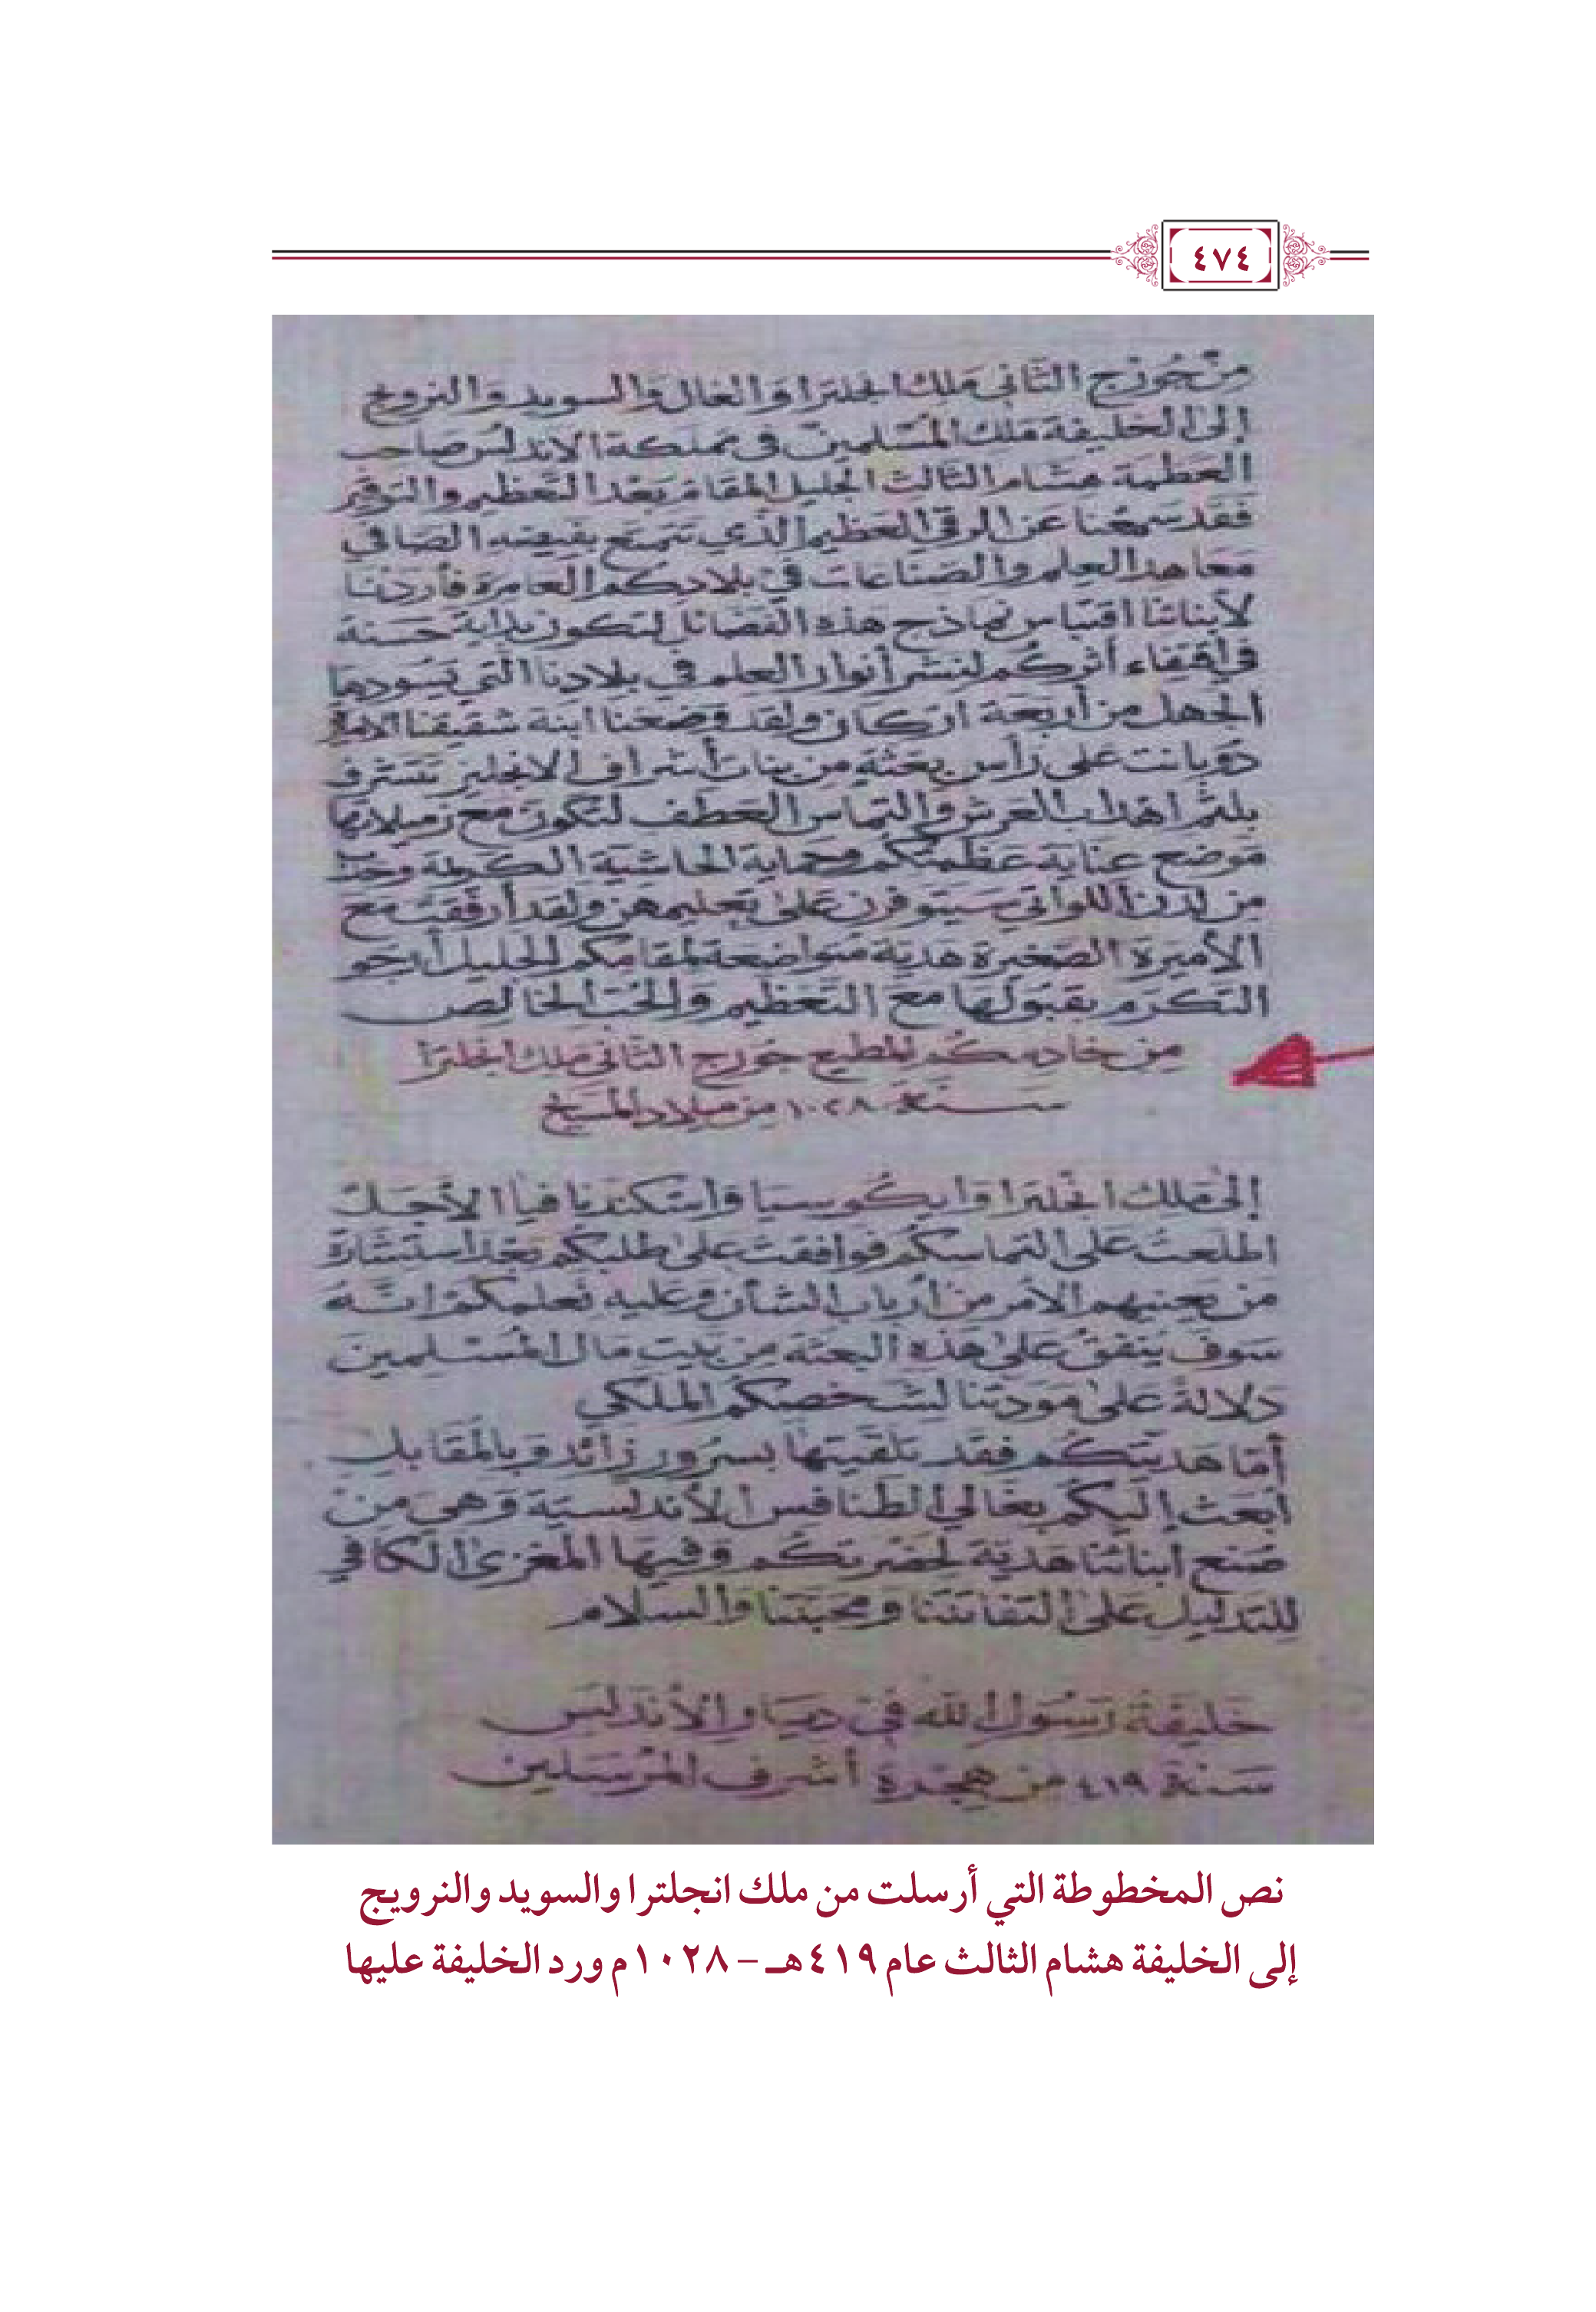 ٤٧٤
من جورج الثاني ملك انجلترا والغال والسويد والنرويج
إلى الخليفة ملك المسلمين في مملكة الاندلس صاحب
العظمة هشام الثالث الجليل المقام بعد التعظيم والتوقير
فقد سمعنا عن الرقي العظيم الذي تتمتع بفيضه الصافي
معاهد العلم والصناعات في بلادكم العامرة فأردنا
لأبنائنا اقتباس نماذج هذه الفضائل لتكون بداية حسنة
في اقتفاء أثركم لنشر أنوار العلم في بلادنا التي يسودها
الجهل من أربعة اركان ولقد وضعنا ابنة شقيقنا الاميرة
دوبانت على رأس بعثة من بنات أشراف الانجليز تتشرف
بلثم اهداب العرش والتماس العطف لتكون مع زميلاتها
موضع عناية عظمتكم وحماية الحاشية الكريمة وحدب
من لدن اللواتي سيتوفرن على تعليمهن ولقد أرفقت مع
الأميرة الصغيرة هدية متواضعة لمقامكم الجليل أرجو
التكرم بقبولها مع التعظيم والحب الخالص
من خادمكم المطيع جورج الثاني ملك انجلترا
سنة ١٠٢٨ من ميلاد المسيح
إلى ملك انجلترا وايكوسيا واسكندنافيا الأجل
اطلعت على التماسكم فوافقت على طلبكم بعد استشارة
من يعنيهم الأمر من أرباب الشأن وعليه نعلمكم انه
سوف ينفق على هذه البعثة من بيت مال المسلمين
دلالة على مودتنا لشخصكم الملكي
أما هديتكم فقد تلقيتها بسرور زائد وبالمقابل
أبعث إليكم بغالي الطنافس الأندلسية وهي من
صنع ابنائنا هدية لحضرتكم وفيها المغزى الكافي
للتدليل على التفاتتنا ومحبتنا والسلام
خليفة رسول الله في ديار الأندلس
سنة ٤١٩ من هجرة أشرف المرسلين
نص المخطوطة التي أرسلت من ملك انجلترا والسويد والنرويج
إلى الخليفة هشام الثالث عام ٤١٩هـ – ١٠٢٨م ورد الخليفة عليها